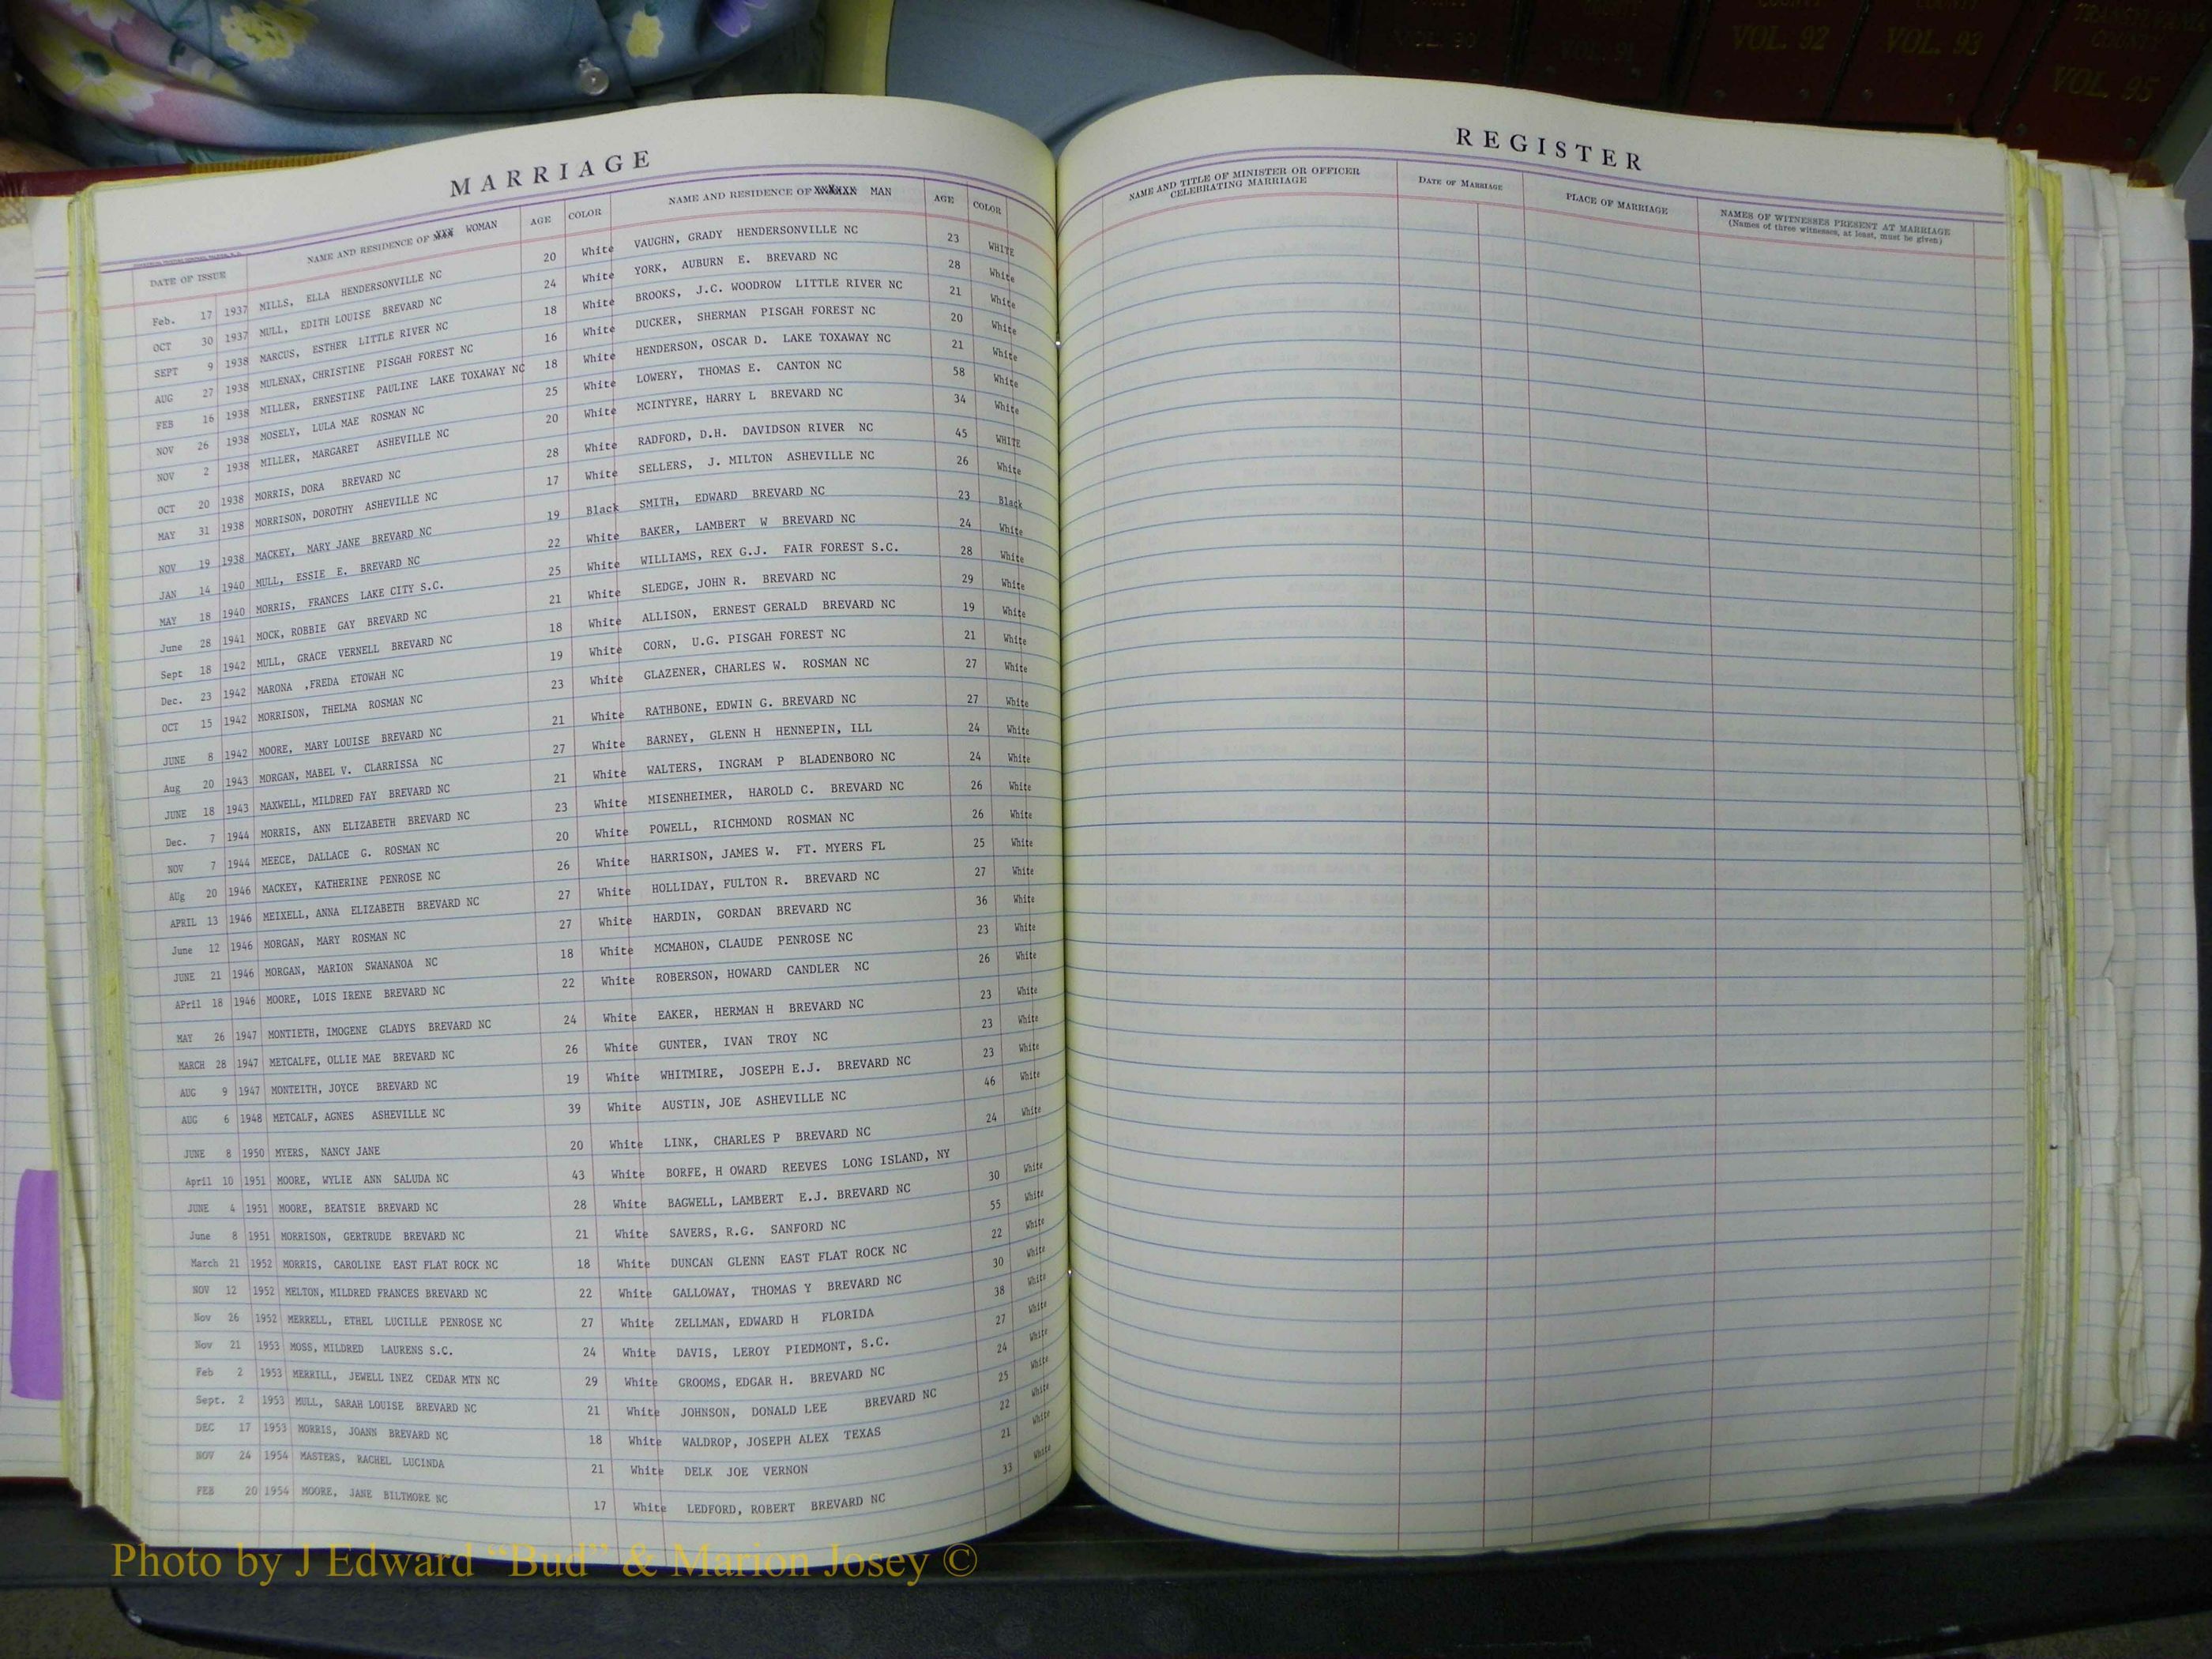 COUNTY VOL. 90
COUNTY VOL. 91
COUNTY VOL. 92
COUNTY VOL. 93
TRANSYLVANIA COUNTY VOL. 95
MARRIAGE
DATE OF ISSUE NAME AND RESIDENCE OF XXX WOMAN AGE COLOR NAME AND RESIDENCE OF XXXXXX MAN AGE COLOR
Feb. 17 1937 MILLS, ELLA HENDERSONVILLE NC 20 White VAUGHN, GRADY HENDERSONVILLE NC 23 WHITE
OCT 30 1937 MULL, EDITH LOUISE BREVARD NC 24 White YORK, AUBURN E. BREVARD NC 28 White
SEPT 9 1938 MARCUS, ESTHER LITTLE RIVER NC 18 White BROOKS, J.C. WOODROW LITTLE RIVER NC 21 White
AUG 27 1938 MULENAX, CHRISTINE PISGAH FOREST NC 16 White DUCKER, SHERMAN PISGAH FOREST NC 20 White
FEB 16 1938 MILLER, ERNESTINE PAULINE LAKE TOXAWAY NC 18 White HENDERSON, OSCAR D. LAKE TOXAWAY NC 21 White
NOV 26 1938 MOSELY, LULA MAE ROSMAN NC 25 White LOWERY, THOMAS E. CANTON NC 58 White
NOV 2 1938 MILLER, MARGARET ASHEVILLE NC 20 White MCINTYRE, HARRY L BREVARD NC 34 White
OCT 20 1938 MORRIS, DORA BREVARD NC 28 White RADFORD, D.H. DAVIDSON RIVER NC 45 WHITE
MAY 31 1938 MORRISON, DOROTHY ASHEVILLE NC 17 White SELLERS, J. MILTON ASHEVILLE NC 26 White
NOV 19 1938 MACKEY, MARY JANE BREVARD NC 19 Black SMITH, EDWARD BREVARD NC 23 Black
JAN 14 1940 MULL, ESSIE E. BREVARD NC 22 White BAKER, LAMBERT W BREVARD NC 24 White
MAY 18 1940 MORRIS, FRANCES LAKE CITY S.C. 25 White WILLIAMS, REX G.J. FAIR FOREST S.C. 28 White
June 28 1941 MOCK, ROBBIE GAY BREVARD NC 21 White SLEDGE, JOHN R. BREVARD NC 29 White
Sept 18 1942 MULL, GRACE VERNELL BREVARD NC 18 White ALLISON, ERNEST GERALD BREVARD NC 19 White
Dec. 23 1942 MARONA ,FREDA ETOWAH NC 19 White CORN, U.G. PISGAH FOREST NC 21 White
OCT 15 1942 MORRISON, THELMA ROSMAN NC 23 White GLAZENER, CHARLES W. ROSMAN NC 27 White
JUNE 8 1942 MOORE, MARY LOUISE BREVARD NC 21 White RATHBONE, EDWIN G. BREVARD NC 27 White
Aug 20 1943 MORGAN, MABEL V. CLARRISSA NC 27 White BARNEY, GLENN H HENNEPIN, ILL 24 White
JUNE 18 1943 MAXWELL, MILDRED FAY BREVARD NC 21 White WALTERS, INGRAM P BLADENBORO NC 24 White
Dec. 7 1944 MORRIS, ANN ELIZABETH BREVARD NC 23 White MISENHEIMER, HAROLD C. BREVARD NC 26 White
NOV 7 1944 MEECE, DALLACE G. ROSMAN NC 20 White POWELL, RICHMOND ROSMAN NC 26 White
AUg 20 1946 MACKEY, KATHERINE PENROSE NC 26 White HARRISON, JAMES W. FT. MYERS FL 25 White
APRIL 13 1946 MEIXELL, ANNA ELIZABETH BREVARD NC 27 White HOLLIDAY, FULTON R. BREVARD NC 27 White
June 12 1946 MORGAN, MARY ROSMAN NC 27 White HARDIN, GORDAN BREVARD NC 36 White
JUNE 21 1946 MORGAN, MARION SWANANOA NC 18 White MCMAHON, CLAUDE PENROSE NC 23 White
APril 18 1946 MOORE, LOIS IRENE BREVARD NC 22 White ROBERSON, HOWARD CANDLER NC 26 White
MAY 26 1947 MONTIETH, IMOGENE GLADYS BREVARD NC 24 White EAKER, HERMAN H BREVARD NC 23 White
MARCH 28 1947 METCALFE, OLLIE MAE BREVARD NC 26 White GUNTER, IVAN TROY NC 23 White
AUG 9 1947 MONTEITH, JOYCE BREVARD NC 19 White WHITMIRE, JOSEPH E.J. BREVARD NC 23 White
AUG 6 1948 METCALF, AGNES ASHEVILLE NC 39 White AUSTIN, JOE ASHEVILLE NC 46 White
JUNE 8 1950 MYERS, NANCY JANE 20 White LINK, CHARLES P BREVARD NC 24 White
April 10 1951 MOORE, WYLIE ANN SALUDA NC 43 White BORFE, H OWARD REEVES LONG ISLAND, NY
JUNE 4 1951 MOORE, BEATSIE BREVARD NC 28 White BAGWELL, LAMBERT E.J. BREVARD NC 30 White
June 8 1951 MORRISON, GERTRUDE BREVARD NC 21 White SAVERS, R.G. SANFORD NC 55 White
March 21 1952 MORRIS, CAROLINE EAST FLAT ROCK NC 18 White DUNCAN GLENN EAST FLAT ROCK NC 22 White
NOV 12 1952 MELTON, MILDRED FRANCES BREVARD NC 22 White GALLOWAY, THOMAS Y BREVARD NC 30 White
Nov 26 1952 MERRELL, ETHEL LUCILLE PENROSE NC 27 White ZELLMAN, EDWARD H FLORIDA 38 White
Nov 21 1953 MOSS, MILDRED LAURENS S.C. 24 White DAVIS, LEROY PIEDMONT, S.C. 27 White
Feb 2 1953 MERRILL, JEWELL INEZ CEDAR MTN NC 29 White GROOMS, EDGAR H. BREVARD NC 24 White
Sept. 2 1953 MULL, SARAH LOUISE BREVARD NC 21 White JOHNSON, DONALD LEE BREVARD NC 25 White
DEC 17 1953 MORRIS, JOANN BREVARD NC 18 White WALDROP, JOSEPH ALEX TEXAS 22 White
NOV 24 1954 MASTERS, RACHEL LUCINDA 21 White DELK JOE VERNON 21 White
FEB 20 1954 MOORE, JANE BILTMORE NC 17 White LEDFORD, ROBERT BREVARD NC 33 White
REGISTER
NAME AND TITLE OF MINISTER OR OFFICER CELEBRATING MARRIAGE DATE OF MARRIAGE PLACE OF MARRIAGE NAMES OF WITNESSES PRESENT AT MARRIAGE
(Names of three witnesses, at least, must be given)
Photo by J Edward “Bud” & Marion Josey ©